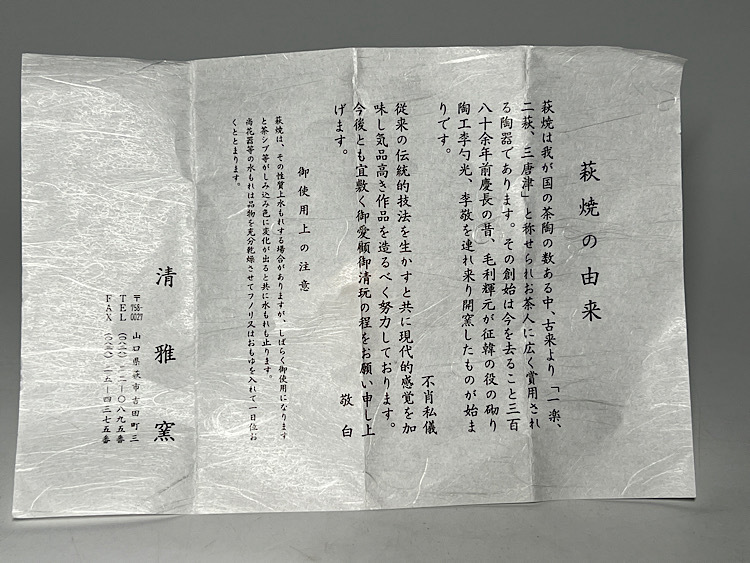 萩焼の由来
萩焼は我が国の茶陶の数ある中、古来より「一楽、
二萩、三唐津」と称せられお茶人に広く賞用され
る陶器であります。その創始は今を去ること三百
八十余年前慶長の昔、毛利輝元が征韓の役の砌り
陶工李勺光、李敬を連れ来り開窯したものが始ま
りです。
不肖私儀
従来の伝統的技法を生かすと共に現代的感覚を加
味し気品高き作品を造るべく努力しております。
今後とも宜敷く御愛顧御清玩の程をお願い申し上
げます。
敬白
御使用上の注意
萩焼は、その性質上水もれする場合がありますが、しばらく御使用になります
と茶シブ等がしみ込み色に変化が出ると共に水もれも止ります。
尚花器等の水もれは品物を充分乾燥させてフノリ又はおもゆを入れて一日位お
くととまります。
清雅窯
〒758-0027 山口県萩市吉田町三
TEL（〇八三八）二二―〇八九五番
FAX（〇八三八）二五―四三七五番